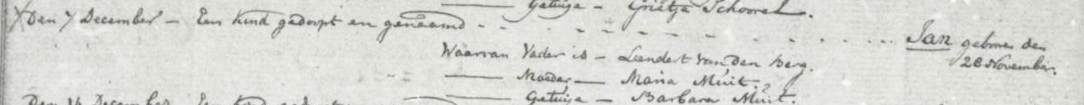 Getuige - Grietje Schoorel.
Den 7 December - Een kind gedoopt en genaamd - - - - - - - - - - Jan geboren den
28 November.
Waarvan Vader is - Leendert van den Berg.
Moeder - Maria Muit.
Getuige - Barbara Muit.
Den 14 December Een kind